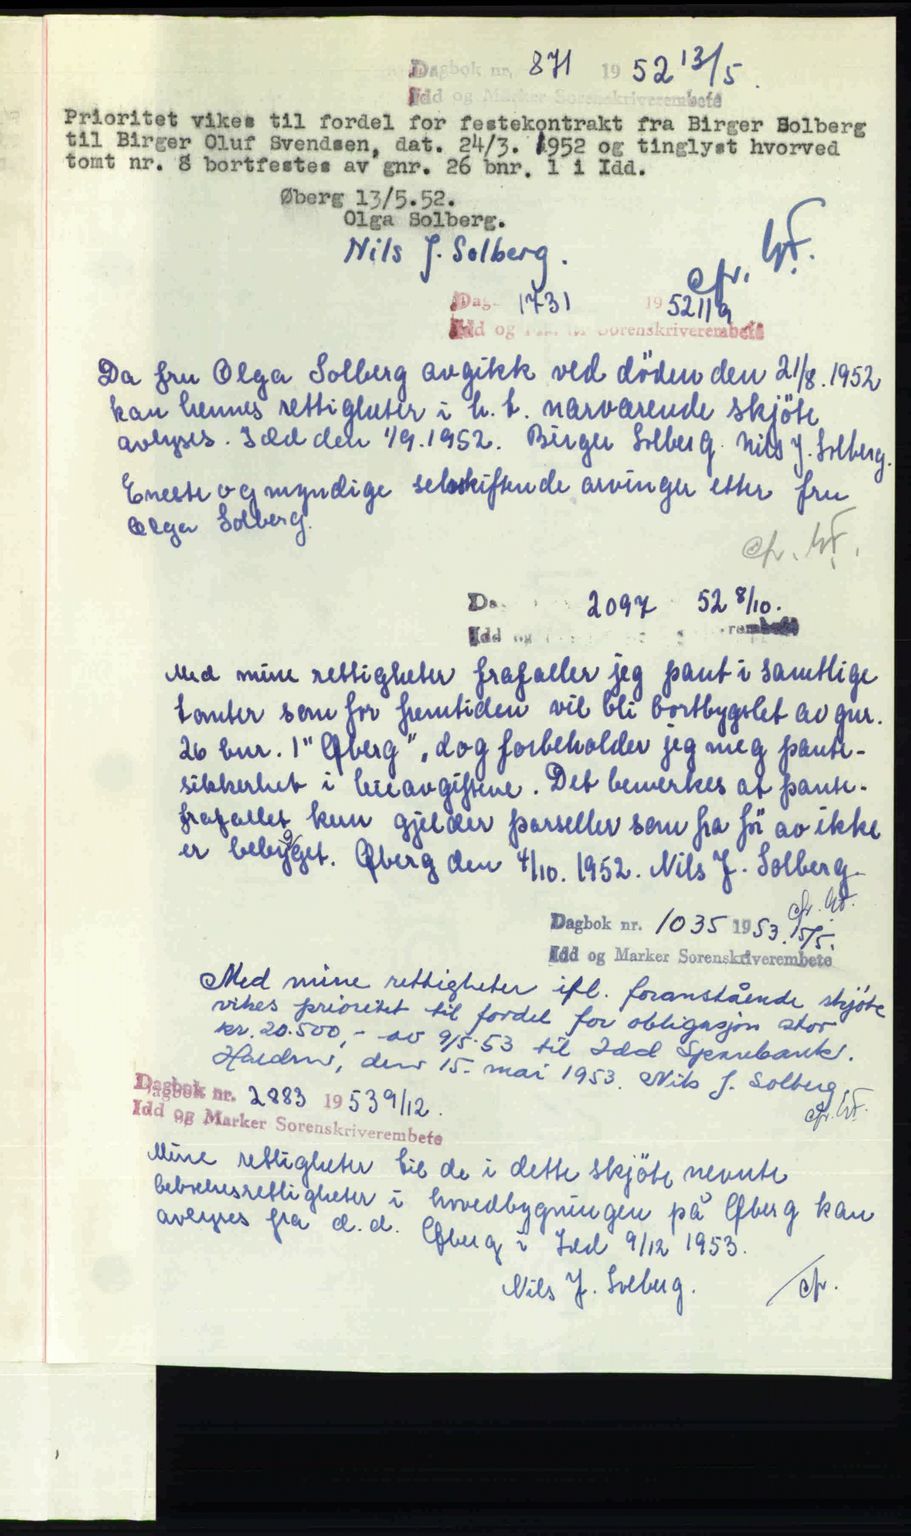 Dagbok nr. 871 19 52 13/5.
Idd og Marker Sorenskriverembete
Prioritet vikes til fordel for festekontrakt fra Birger Solberg
til Birger Oluf Svendsen, dat. 24/3. 1952 og tinglyst hvorved
tomt nr. 8 bortfestes av gnr. 26 bnr. 1 i Idd.
Øberg 13/5.52.
Olga Solberg.
Nils J. Solberg.
cfr.
Dag. 1731 19 52 11/9
Idd og Sorenskriverembete
Da fru Olga Solberg avgikk ved döden den 21/8. 1952
kan hennes rettigheter i h. t. nærværende skjöte
avlyses. Idd den 1/9.1952. Birger Solberg Nils J. Solberg.
Eneste og myndige selvskiftende arvinger etter fru
Olga Solberg.
cfr.
Da. 2097 52 8/10.
Idd og rembete
Med mine rettigheter frafaller jeg pant i samtlige
tomter som for fremtiden vil bli bortbygslet av gnr.
26 bnr. 1 "Øberg", dog forbeholder jeg meg pante-
sikkerhet i leieavgiftene. Det bemerkes at pante-
frafallet kun gjelder parseller som fra för av ikke
er bebygget. Øberg den 4/10. 1952. Nils J. Solberg.
cfr.
Dagbok nr. 1035 1953. 15/5.
Idd og Marker Sorenskriverembete
Med mine rettigheter ifl. foranstående skjöte
vikes prioritet til fordel for obligasjon stor
kr. 20.500,- av 9/5-53 til Idd Sparebank.
Halden, den 15. mai 1953. Nils J. Solberg
cfr.
Dagbok nr. 2883 19 53 9/12.
Idd og Marker Sorenskriverembete
Mine rettigheter til de i dette skjöte nevnte
beboelsesrettigheter i hovedbygningen på Øberg kan
avlyses fra d.d. Øberg i Idd 9/12 1953.
Nils J. Solberg.
cfr.